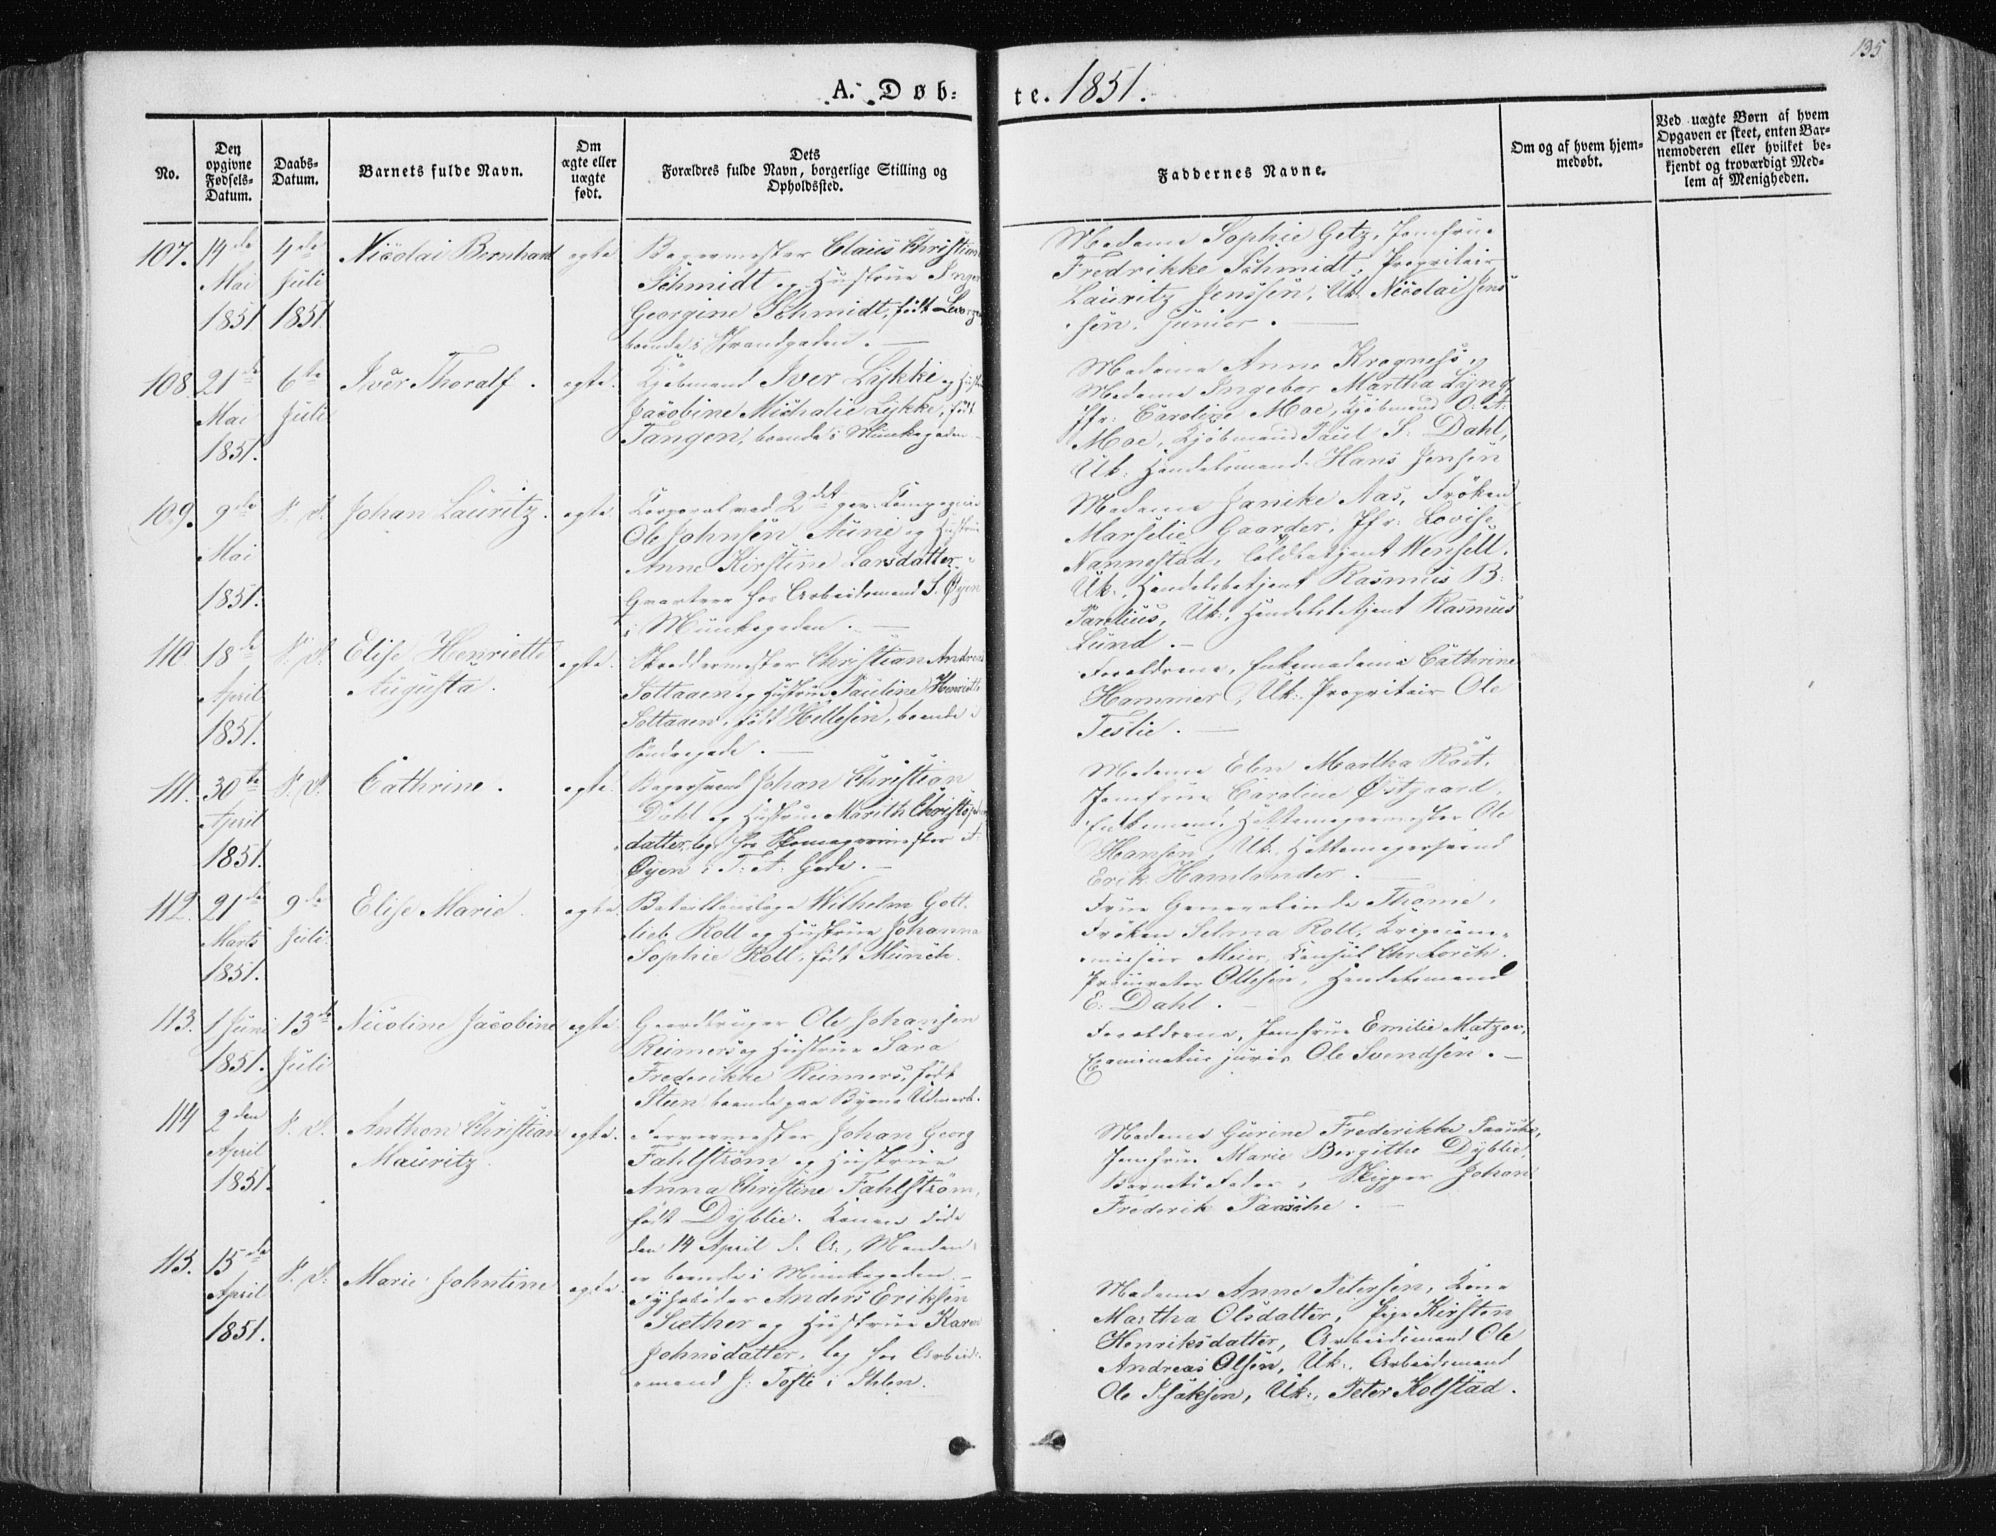 135
A. Døb= te. 1851.
No.
Den opgivne Fødsels-Datum.
Daabs-Datum.
Barnets fulde Navn.
Om ægte eller uægte født.
Dets Forældres fulde Navn, borgerlige Stilling og Opholdssted.
Faddernes Navne.
Om og af hvem hjemmedøbt.
Ved uægte Børn af hvem Opgaven er skeet, enten Barnemoderen eller hvilket bekjendt og troværdigt Medlem af Menigheden.
107. 14de Mai 1851 4de Juli 1851 Nicolai Bernhard egte
Bagermester Claus Christian
Schmidt og Hustrue Inger
Georgine Schmidt, født
boende i Strandgaden. —
Madame Sophie Getz, Jomfrue
Fredrikke Schmidt, Propritair
Lauritz Jenssen, Uk: Nicolai Jens
sen, junior. —
108. 21de Mai 1851. 6te Juli Iver Thoralf. egte.
Kjøbmand Iver Lykke og Hustru
Jacobine Michalie Lykke, født
Tangen, boende i Munkegaden —
Madame Anne Krogness,
Madame Ingebor Martha Lyng,
Jfr: Caroline Moe, Kjøbmand O: A:
Moe, Kjøbmand Paul S: Dahl,
Uk: Handelsmand Hans Jensen
109. 9de Mai 1851. S. D. Johan Lauritz. egte.
Corporal ved 2det gev: Compagnie
Ole Johnsen Aune og Hustrue
Anne Kirstine Larsdatter
Qvarteer hos Arbeidsmand S. Øyen
i Munkegaden. —
Madame Janike Aas, Frøken
Marselie Gaarder, Jfr: Lovise
Nannestad, Toldbetjent Wensell.
Uk: Handelsbetjent Rasmus B:
Parelius, Uk: Handelsbetjent Rasmus
Lund. —
110. 18de April 1851. S. D. Elise Henriette Augusta. egte.
Skreddermester Christian Andreas
Soltaaen og Hustrue Pauline Henriette
Soltaaen, født Hellesen, boende i
Søndregade. —
Forældrene, Enkemadame Cathrine
Hammer, Uk: Propritair Ole
Teslie. —
111. 30te April 1851. S. D. Cathrine. egte.
Bagersvend Johan Christian
Dahl og Hustrue Marith Christopher
datter, log: hos Skomagermester A:
Øyen i T: A: Gade. —
Madame Elen Martha Röst,
Jomfrue Caroline Østgaard,
Enkemand, Hattemagermester Ole
Hansen, Uk: Hattemagersvend
Erik Hamlander. —
112. 21de Marts 1851. 9de Juli. Elise Marie. egte.
Bataillonslæge Wilhelm Gott
lieb Roll og Hustrue Johanna
Sophie Roll, født Münch.
Frue Generalinde Thome,
Frøken Selma Roll, Krigscom-
missair Meier, Consul Chr Lorck.
Procurator Ottesen, Handelsmand
E: Dahl. —
113. 1 Juni 1851. 13de Juli Nicoline Jacobine egte.
Gaardbruger Ole Johansen
Reimers og Hustrue Sara
Frederikke Reimers, født
Steen, boende paa Byens Udmark.
Forældrene, Jomfrue Emilie Matzow,
Examinatus juris Ole Svendsen. —
114 2den April 1851. S. D. Anthon Christian Mauritz. egte.
Farvermester Johan Georg
Fahlstrøm og Hustrue
Anna Christine Fahlstrøm,
født Dyblie. Konen døde
den 14 April d. A:, Manden
er boende i Munkegaden. —
Madame Gurine Frederikke Paasche,
Jomfrue Marie Bergithe Dyblie,
Barnets Fader, Skipper Johan
Frederik Paasche. —
115. 15de April 1851. S. D. Marie Johntine egte.
Fyrbøder Anders Eriksen
Sæther og Hustrue Karen
Johnsdatter, log hos Arbeids
mand J: Tofte i Ihlen.
Madame Anne Petersen, Kone
Martha Olsdatter, Pige Kirsten
Henriksdatter, Arbeidsmand Ole
Andreas Olsen, Uk: Arbeidsmand
Ole Isaksen, Uk: Peter Kolstad.